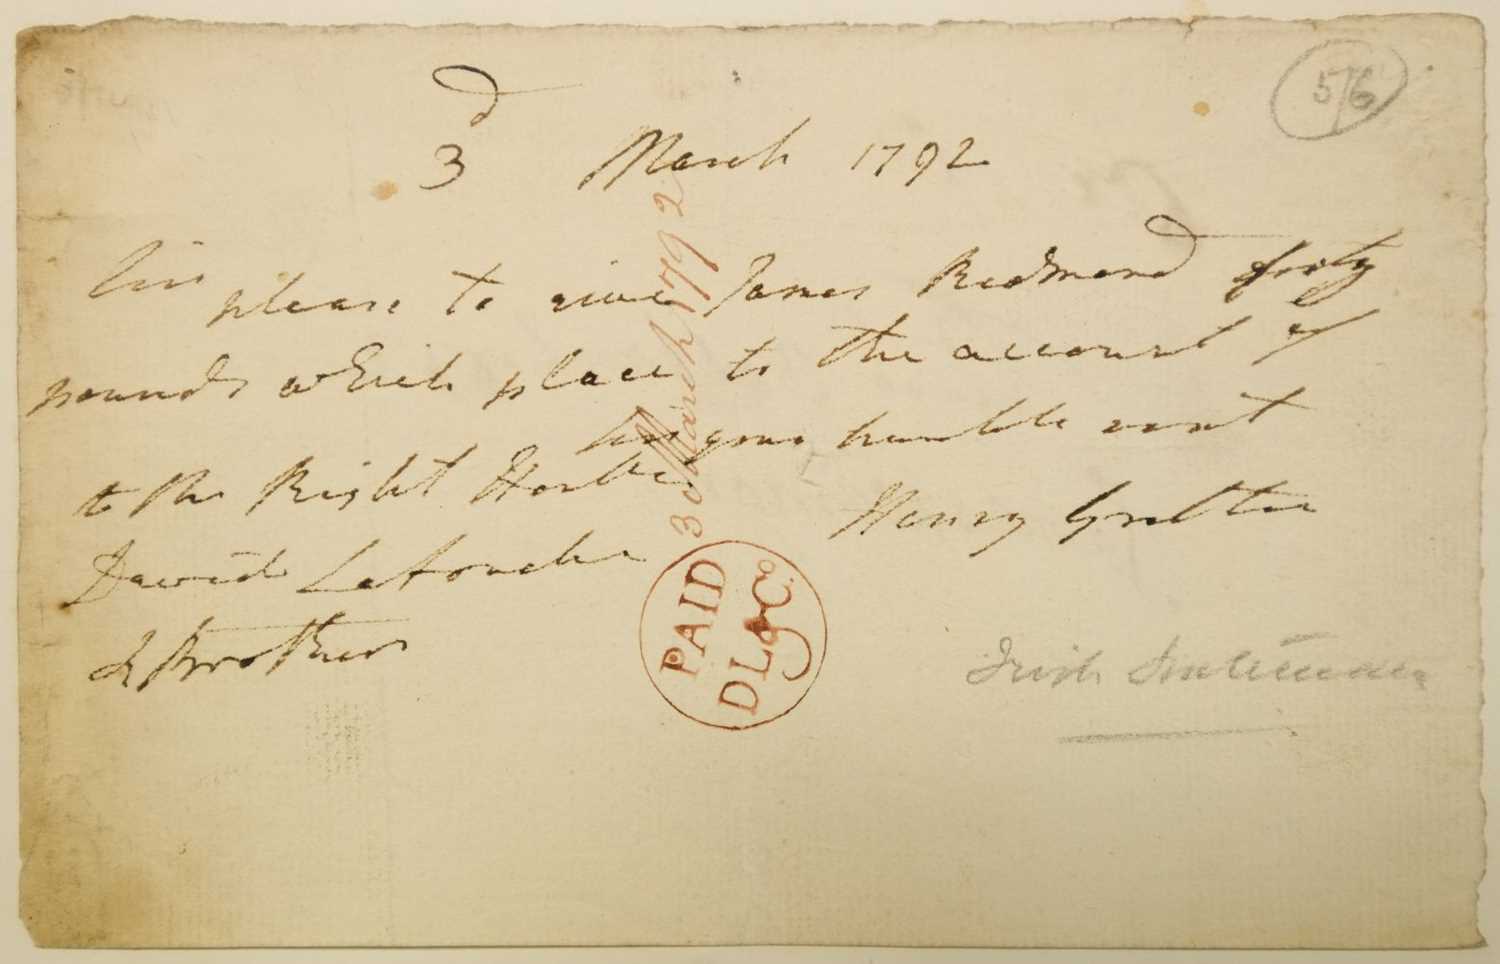 5/6
3d March 1792
Sir
please to give James Redmond forty
pounds which place to the account of
Sir your humble servt
to the Right Honble Henry Grattan
David Latouche
& Brothers
3 March 1792
PAID
DL & Co.
Irish